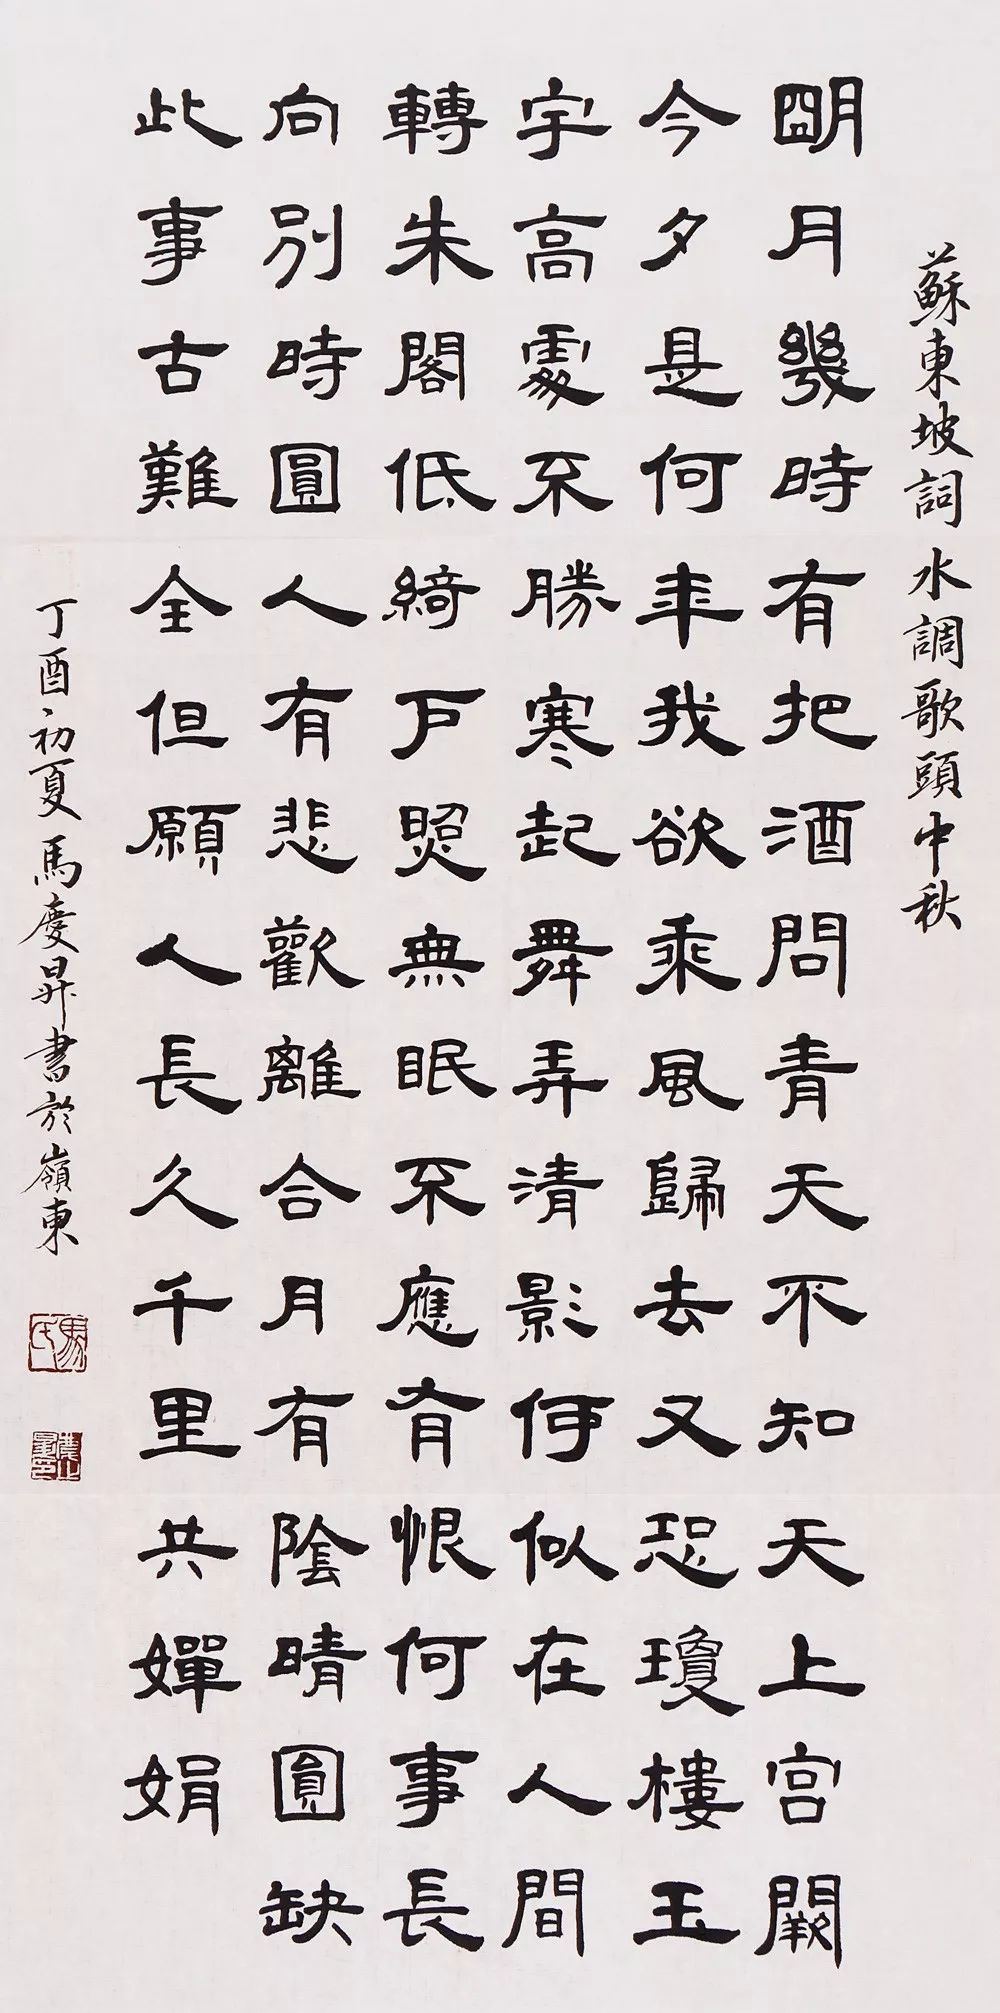 蘇東坡詞水調歌頭中秋
朙月幾時有把酒問青天不知天上宮闕
今夕是何年我欲乘風歸去又恐瓊樓玉
宇高處不勝寒起舞弄清影何似在人間
轉朱閣低綺戶照無眠不應有恨何事長
向別時圓人有悲歡離合月有陰晴圓缺
此事古難全但願人長久千里共嬋娟
丁酉初夏馬慶昇書於嶺東
馬氏